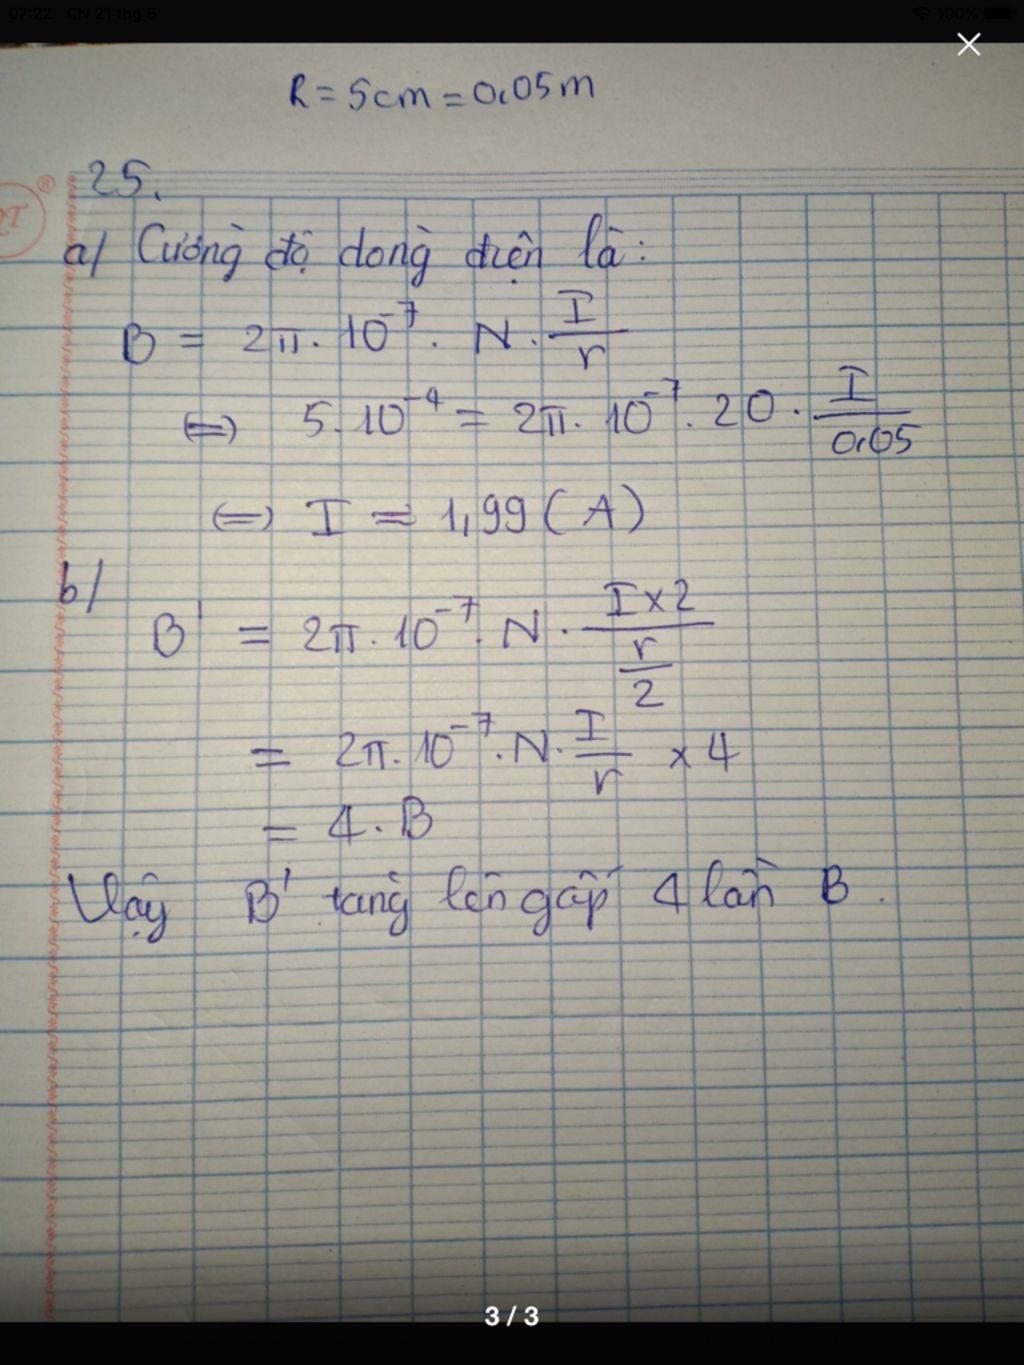 07:22 CN 21 thg 6 100%
R = 5cm = 0,05m
25.
a/ Cường độ dòng điện là:
B = 2π. 10⁻⁷. N. I/r
⇔ 5.10⁻⁴ = 2π. 10⁻⁷. 20. I/0,05
⇔ I = 1,99 (A)
b/
B' = 2π. 10⁻⁷. N. (I×2)/(r/2)
= 2π. 10⁻⁷. N. I/r × 4
= 4. B
Vậy B' tăng lên gấp 4 lần B.
3 / 3